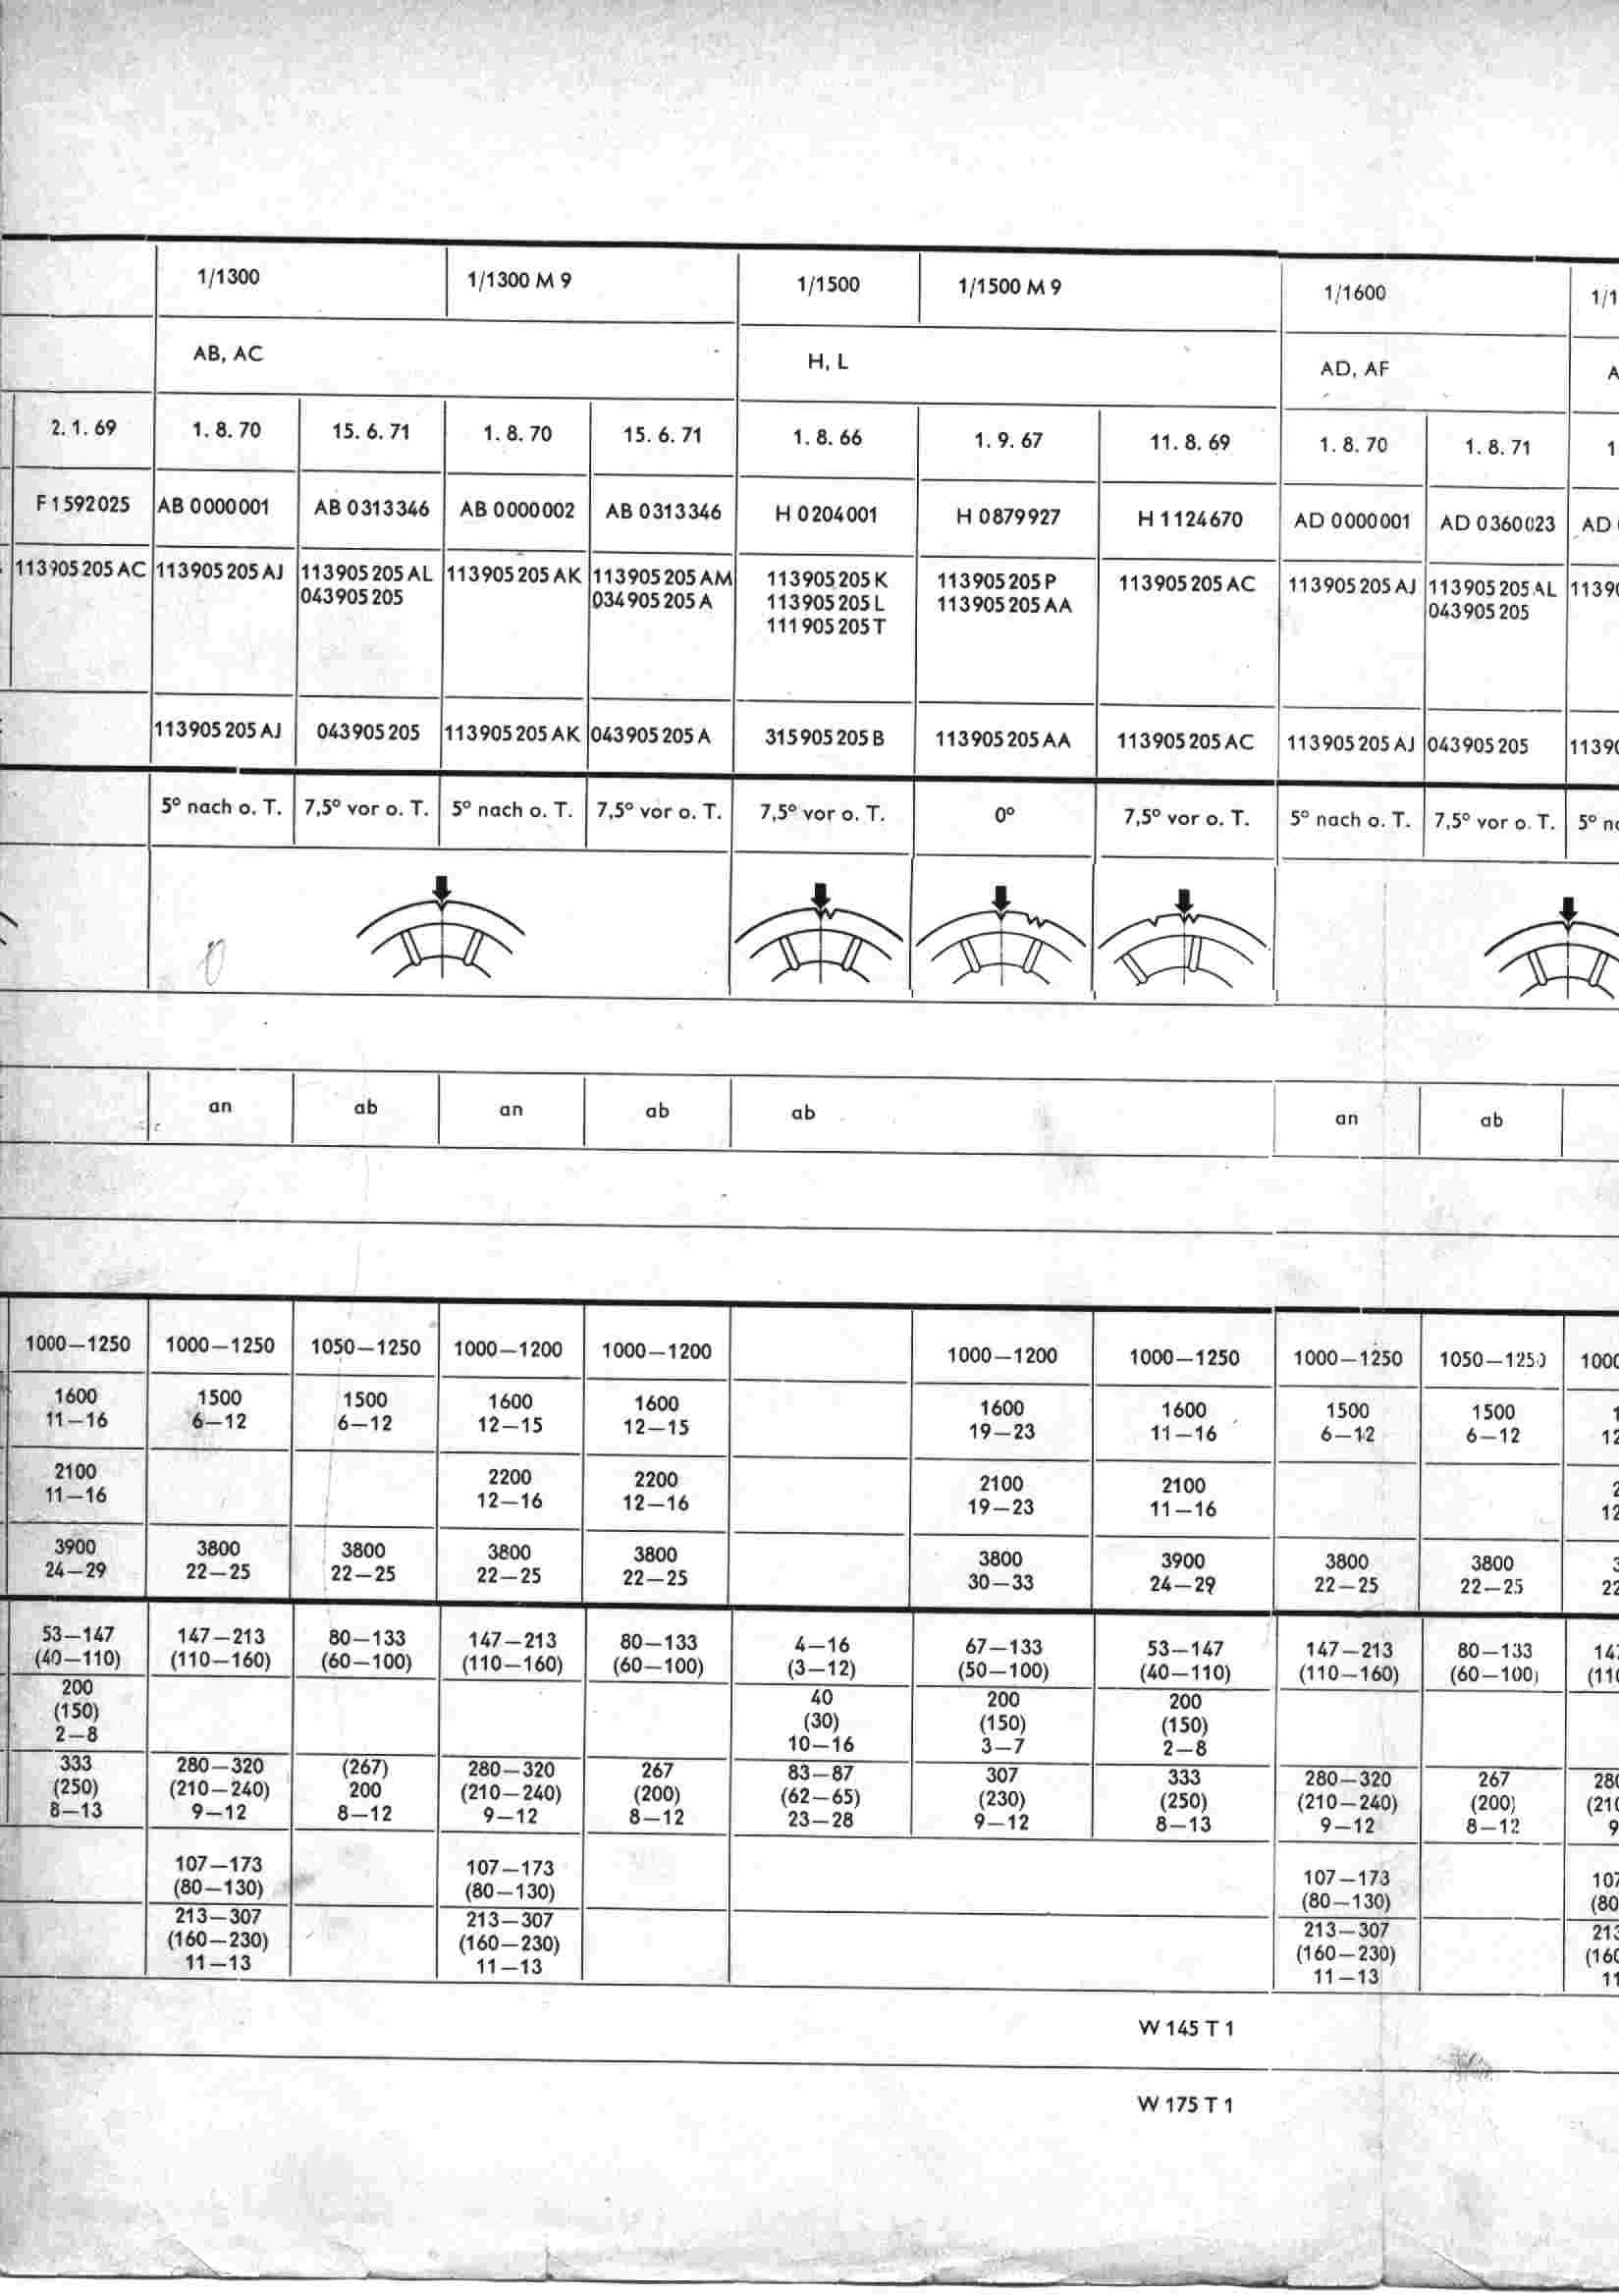 1/1300 1/1300 M 9 1/1500 1/1500 M 9 1/1600 1/1
AB, AC H, L AD, AF A
2. 1. 69 1. 8. 70 15. 6. 71 1. 8. 70 15. 6. 71 1. 8. 66 1. 9. 67 11. 8. 69 1. 8. 70 1. 8. 71 1
F 1592025 AB 0000001 AB 0313346 AB 0000002 AB 0313346 H 0204001 H 0879927 H 1124670 AD 0000001 AD 0360023 AD
113905205 AC 113905205 AJ 113905205 AL 113905205 AK 113905205 AM 113905205 K 113905205 P 113905205 AC 113905205 AJ 113905205 AL 1139
043905205 034905205 A 113905205 L 113905205 AA 043905205
111905205 T
113905205 AJ 043905205 113905205 AK 043905205 A 315905205 B 113905205 AA 113905205 AC 113905205 AJ 043905205 1139
5° nach o. T. 7,5° vor o. T. 5° nach o. T. 7,5° vor o. T. 7,5° vor o. T. 0° 7,5° vor o. T. 5° nach o. T. 7,5° vor o. T. 5° n
an ab an ab ab an ab
1000—1250 1000—1250 1050—1250 1000—1200 1000—1200 1000—1200 1000—1250 1000—1250 1050—1250 1000
1600 1500 1500 1600 1600 1600 1600 1500 1500 1
11—16 6—12 6—12 12—15 12—15 19—23 11—16 6—12 6—12 12
2100 2200 2200 2100 2100 2
11—16 12—16 12—16 19—23 11—16 12
3900 3800 3800 3800 3800 3800 3900 3800 3800 3
24—29 22—25 22—25 22—25 22—25 30—33 24—29 22—25 22—25 22
53—147 147—213 80—133 147—213 80—133 4—16 67—133 53—147 147—213 80—133 147
(40—110) (110—160) (60—100) (110—160) (60—100) (3—12) (50—100) (40—110) (110—160) (60—100) (110
200 40 200 200
(150) (30) (150) (150)
2—8 10—16 3—7 2—8
333 280—320 (267) 280—320 267 83—87 307 333 280—320 267 280
(250) (210—240) 200 (210—240) (200) (62—65) (230) (250) (210—240) (200) (210
8—13 9—12 8—12 9—12 8—12 23—28 9—12 8—13 9—12 8—12 9
107—173 107—173 107—173 107
(80—130) (80—130) (80—130) (80
213—307 213—307 213—307 213
(160—230) (160—230) (160—230) (160
11—13 11—13 11—13 11
W 145 T 1
W 175 T 1